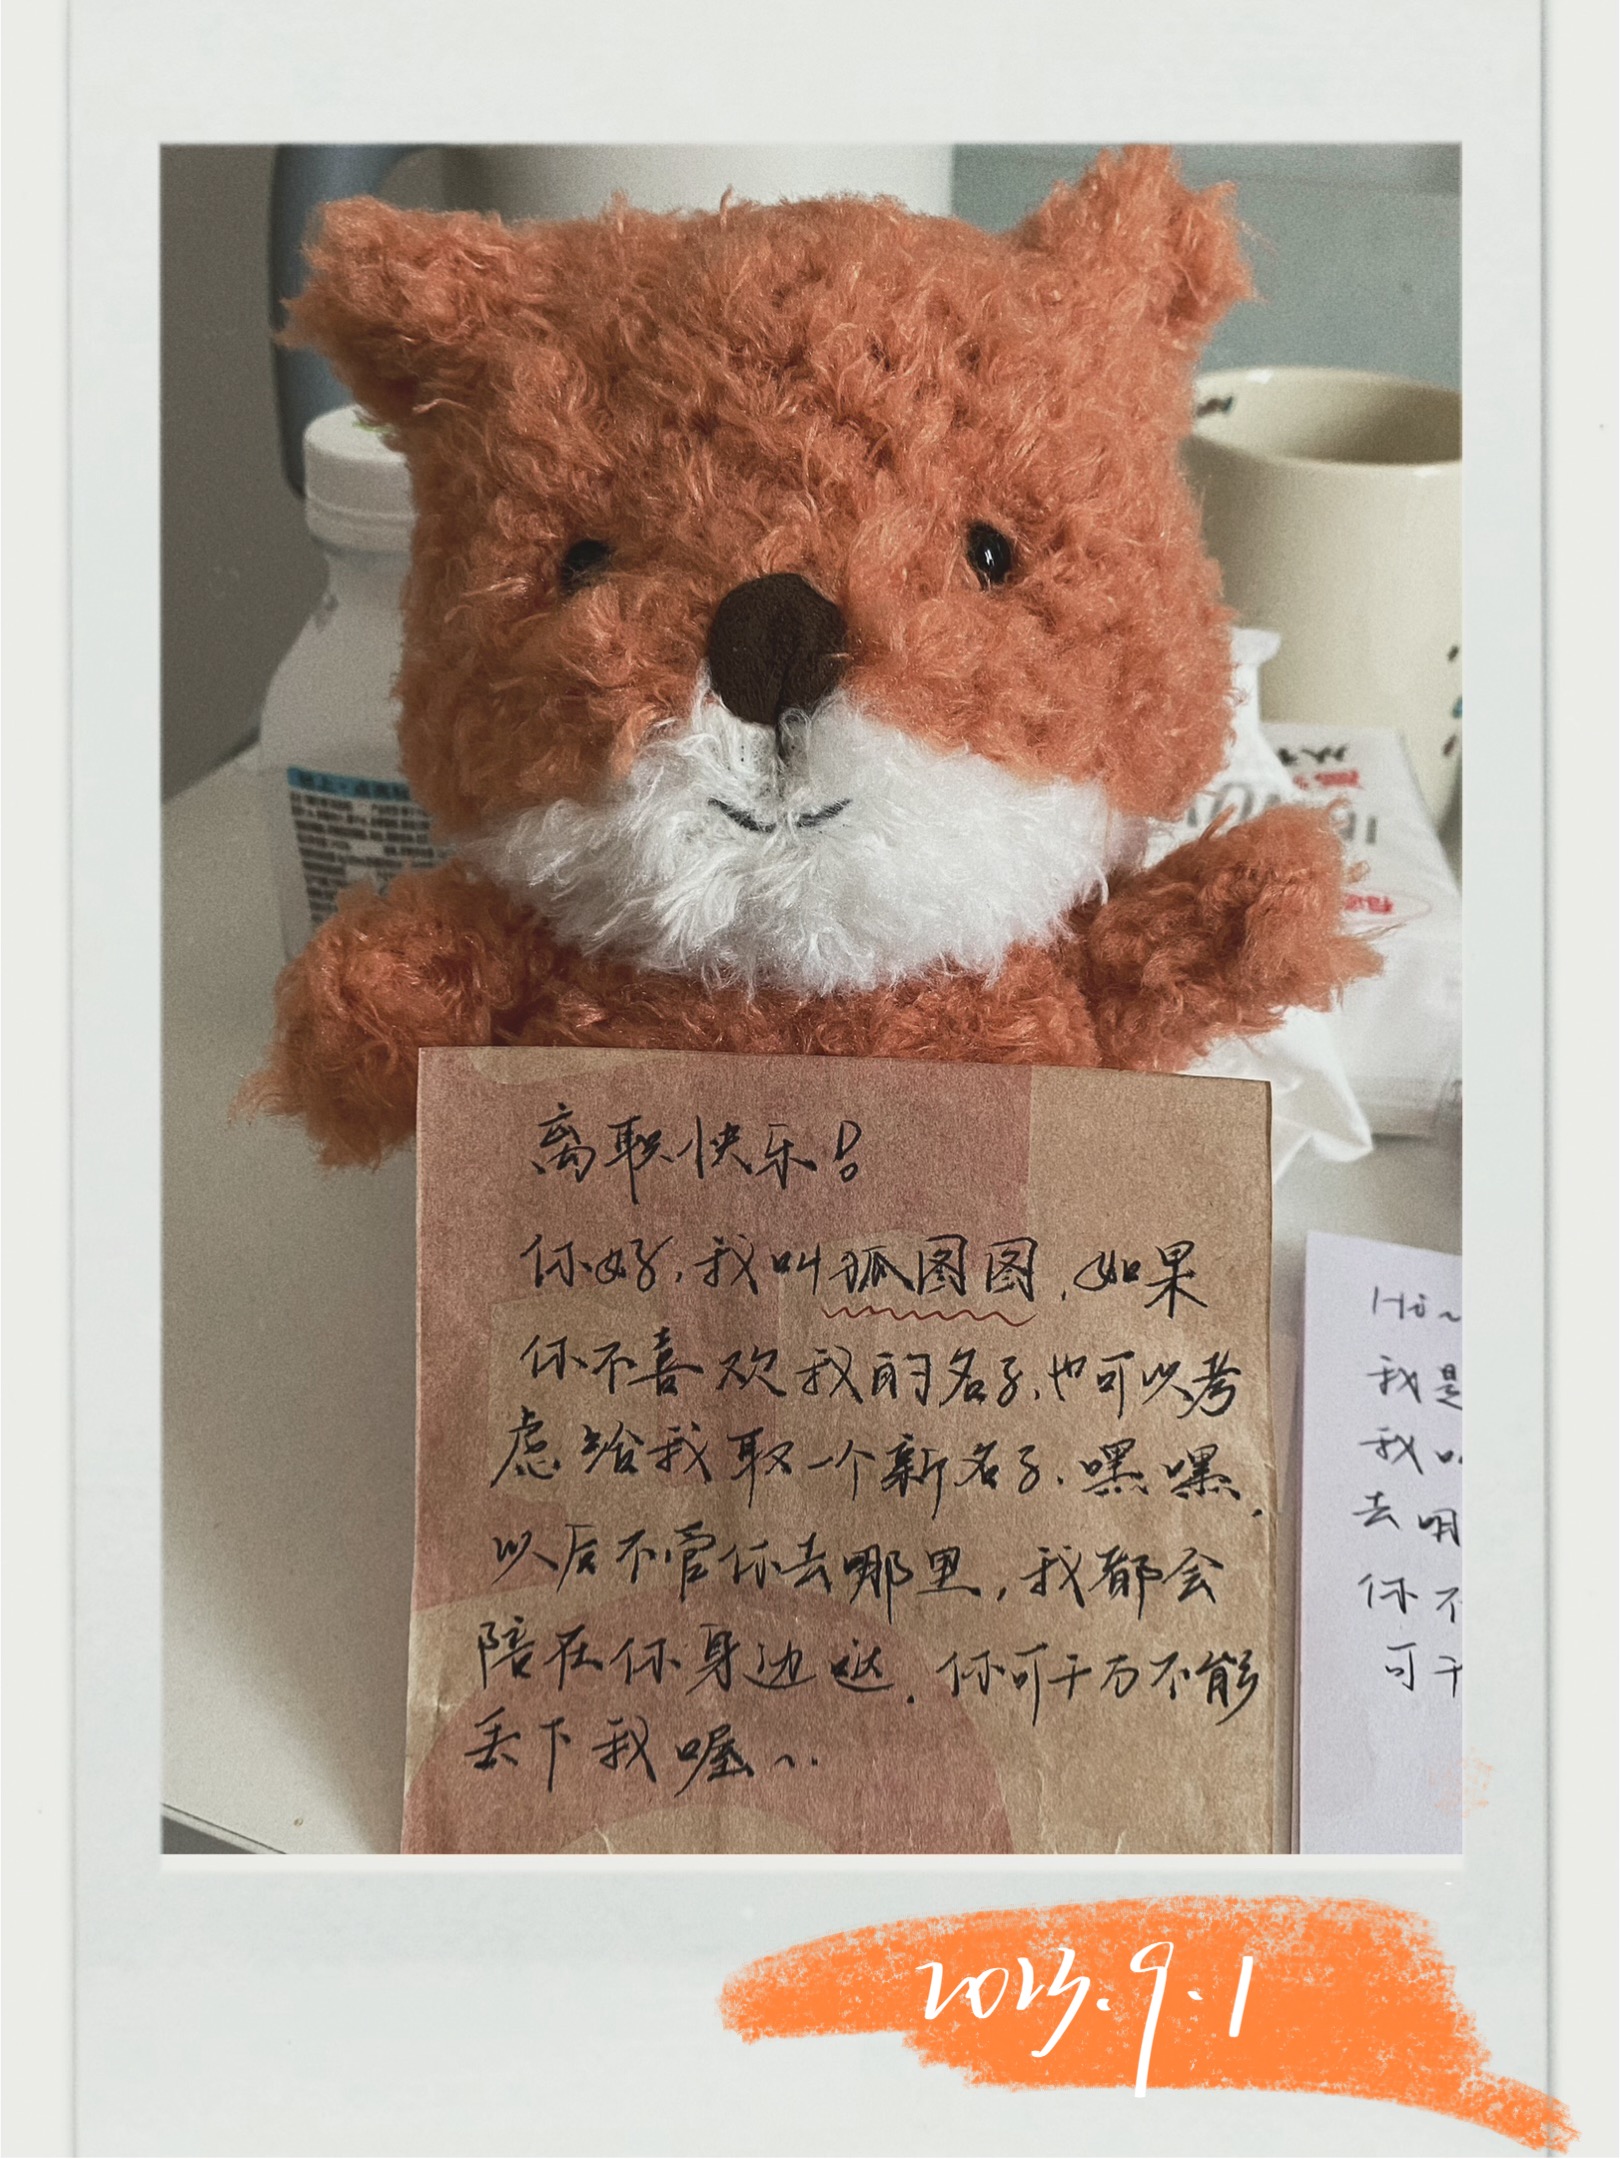 离职快乐!
你好,我叫狐图图,如果
你不喜欢我的名子,也可以考
虑给我取一个新名子.嘿嘿,
以后不管你去哪里,我都会
陪在你身边哒.你可千万不能
丢下我喔~..
Hi~
我是
我
去明
你不
可千
2023.9.1